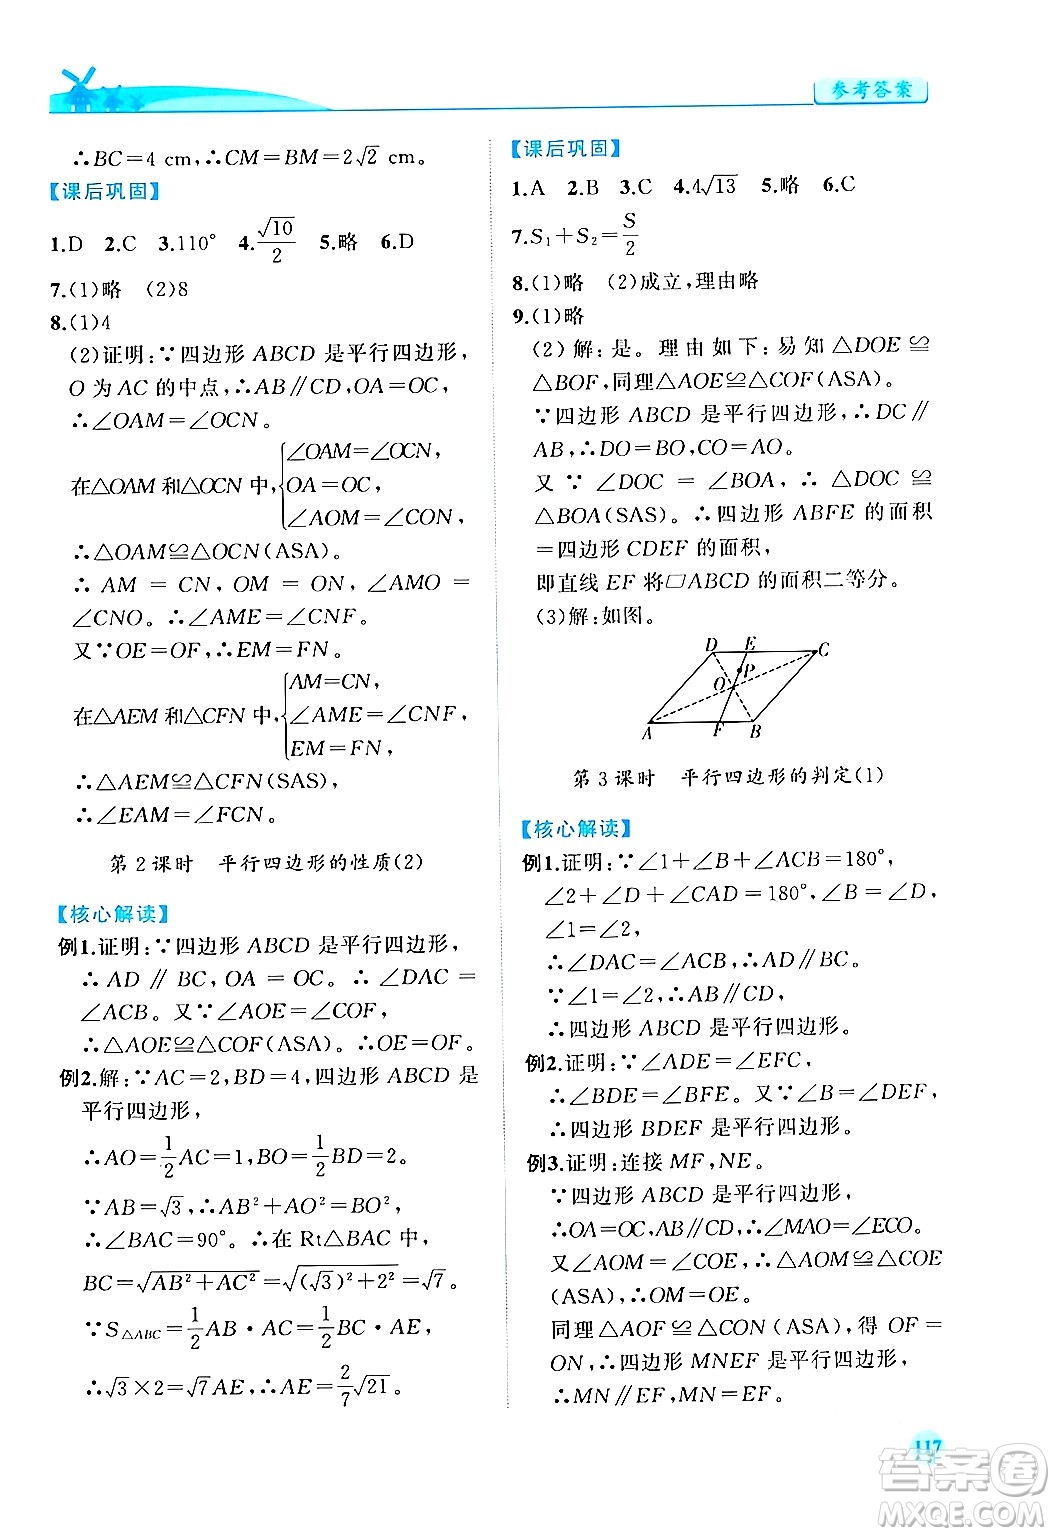 参考答案
∴BC=4 cm,∴CM=BM=2√2 cm。
【课后巩固】
1.D 2.C 3.110° 4.√10/2 5.略 6.D
7.(1)略 (2)8
8.(1)4
(2)证明:∵四边形 ABCD 是平行四边形,
O 为 AC 的中点,∴AB∥CD,OA=OC,
∴∠OAM=∠OCN。
在△OAM 和△OCN 中,{∠OAM=∠OCN,
OA=OC,
∠AOM=∠CON,
∴△OAM≌△OCN(ASA)。
∴ AM = CN, OM = ON, ∠AMO =
∠CNO。∴∠AME=∠CNF。
又∵OE=OF,∴EM=FN。
在△AEM 和△CFN 中,{AM=CN,
∠AME=∠CNF,
EM=FN,
∴△AEM≌△CFN(SAS),
∴∠EAM=∠FCN。
第 2 课时 平行四边形的性质(2)
【核心解读】
例1.证明:∵四边形 ABCD 是平行四边形,
∴ AD ∥ BC, OA = OC。∴ ∠DAC =
∠ACB。又∵∠AOE=∠COF,
∴△AOE≌△COF(ASA)。∴OE=OF。
例2.解:∵AC=2,BD=4,四边形 ABCD 是
平行四边形,
∴AO=1/2AC=1,BO=1/2BD=2。
∵AB=√3,∴AB²+AO²=BO²。
∴∠BAC=90°。∴在 Rt△BAC 中,
BC=√(AB²+AC²)=√((√3)²+2²)=√7。
∵S△ABC=1/2AB·AC=1/2BC·AE,
∴√3×2=√7AE,∴AE=2/7√21。
【课后巩固】
1.A 2.B 3.C 4.4√13 5.略 6.C
7.S₁+S₂=S/2
8.(1)略 (2)成立,理由略
9.(1)略
(2)解:是。理由如下:易知△DOE≌
△BOF,同理△AOE≌△COF(ASA)。
∵四边形 ABCD 是平行四边形,∴DC∥
AB,∴DO=BO,CO=AO。
又 ∵ ∠DOC = ∠BOA, ∴ △DOC ≌
△BOA(SAS)。∴四边形 ABFE 的面积
=四边形 CDEF 的面积,
即直线 EF 将▱ABCD 的面积二等分。
(3)解:如图。
D E C
P
O
A F B
第 3 课时 平行四边形的判定(1)
【核心解读】
例1.证明:∵∠1+∠B+∠ACB=180°,
∠2+∠D+∠CAD=180°,∠B=∠D,
∠1=∠2,
∴∠DAC=∠ACB,∴AD∥BC。
∵∠1=∠2,∴AB∥CD,
∴四边形 ABCD 是平行四边形。
例2.证明:∵∠ADE=∠EFC,
∴∠BDE=∠BFE。又∵∠B=∠DEF,
∴四边形 BDEF 是平行四边形。
例3.证明:连接 MF,NE。
∵四边形 ABCD 是平行四边形,
∴OA=OC,AB∥CD,∴∠MAO=∠ECO。
又∠AOM=∠COE,∴△AOM≌△COE
(ASA),∴OM=OE。
同理△AOF≌△CON(ASA),得 OF =
ON,∴四边形 MNEF 是平行四边形,
∴MN∥EF,MN=EF。
117
答案卷
MXQE.COM